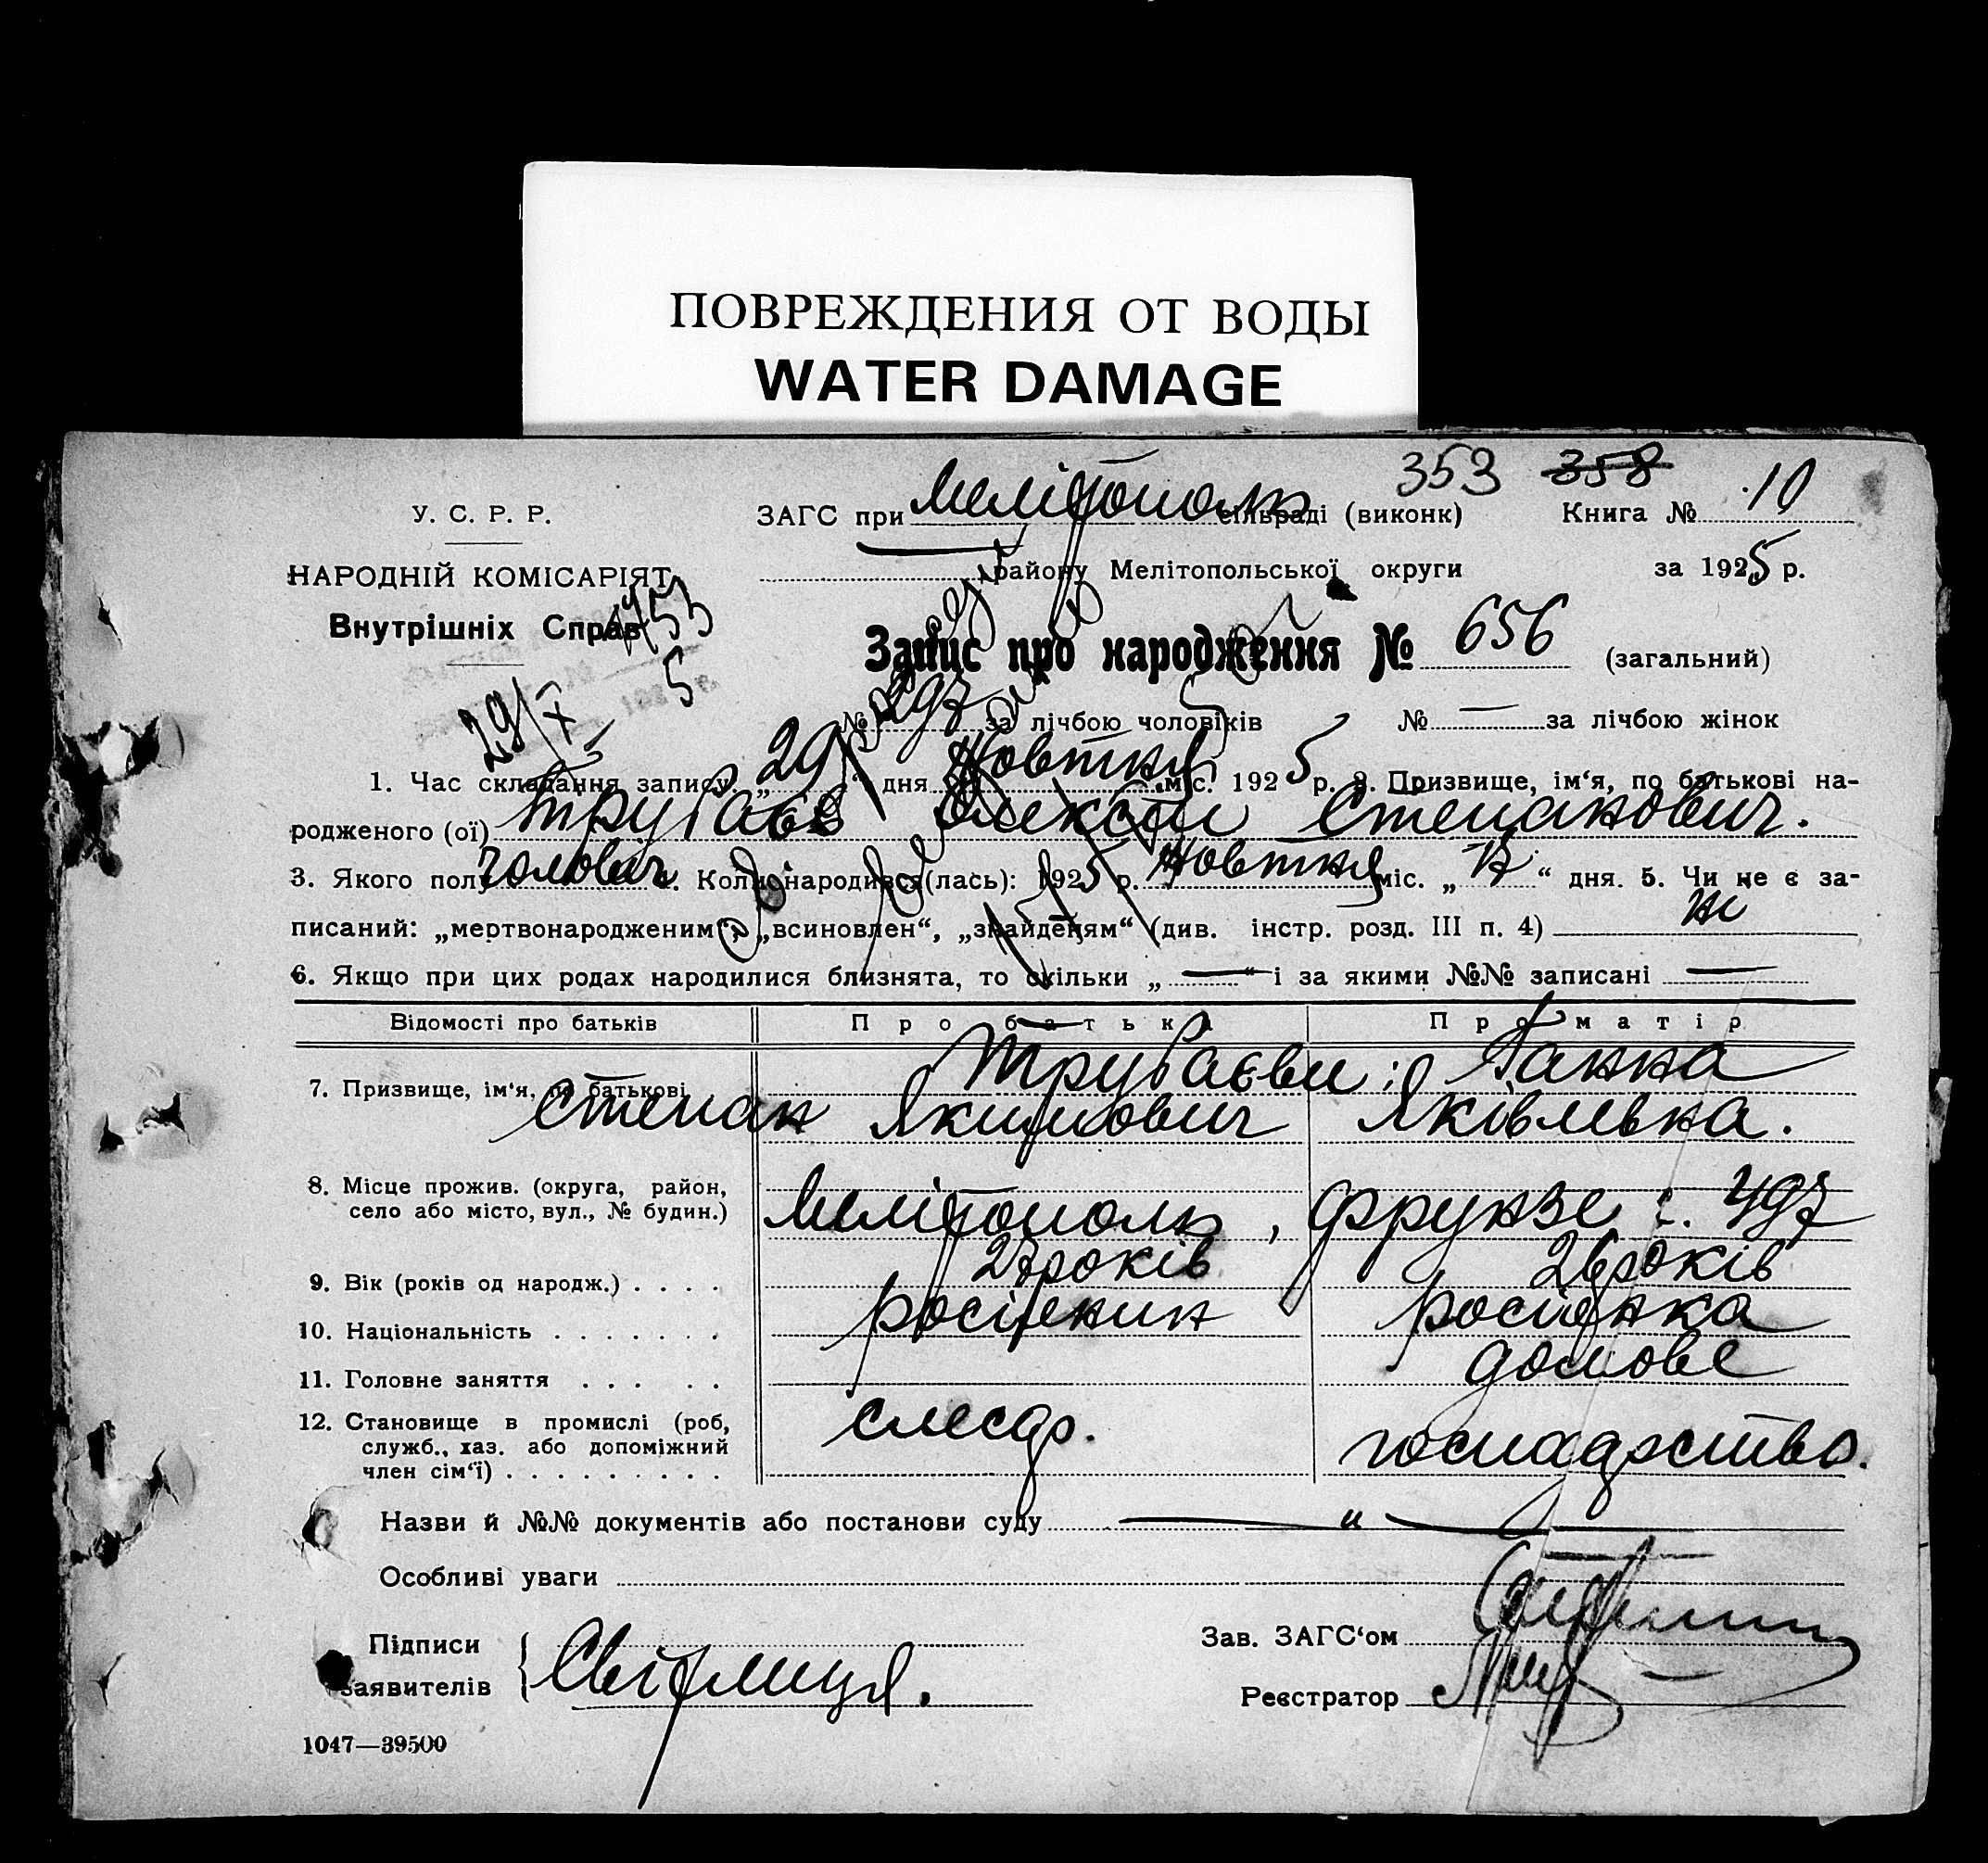 ПОВРЕЖДЕНИЯ ОТ ВОДЫ
WATER DAMAGE
353 358
У. С. Р. Р.
ЗАГС при Мелітополь сільраді (виконк) Книга № 10
НАРОДНІЙ КОМІСАРІЯТ
району Мелітопольської округи за 1925 р.
Внутрішніх Справ
Запис про народження № 656 (загальний)
29/X 5
№ 297 за лічбою чоловіків № — за лічбою жінок
1. Час складання запису. „29“ дня Жовтня міс. 1925 р. 2. Призвище, ім‘я, по батькові на-
родженого (ої) Трубаєв Олексій Степанович.
3. Якого полу чоловіч. Коли народився(лась): 1925 р. Жовтня міс. „ “ дня. 5. Чи не є за-
писаний: „мертвонародженим“, „всиновлен“, „знайденям“ (див. інстр. розд. III п. 4) ні
6. Якщо при цих родах народилися близнята, то скільки „ — “ і за якими №№ записані —
Відомості про батьків Про батька Про матір
7. Призвище, ім‘я, по батькові Трубаєви: Ганна
Степан Якимович Яківлевна.
8. Місце прожив. (округа, район,
село або місто, вул., № будин.) Мелітополь, Фрунзе
9. Вік (років од народж.) . . . . 27 років 26 років
10. Національність . . . . . . . росіенин росіянка
11. Головне заняття . . . . . домове
12. Становище в промислі (роб,
служб., хаз. або допоміжний
член сім‘ї) . . . . . . . . . слесар. господарство.
Назви й №№ документів або постанови суду — " —
Особливі уваги
Підписи
заявителів Світлиця.
Зав. ЗАГС‘ом
Реєстратор
1047—39500